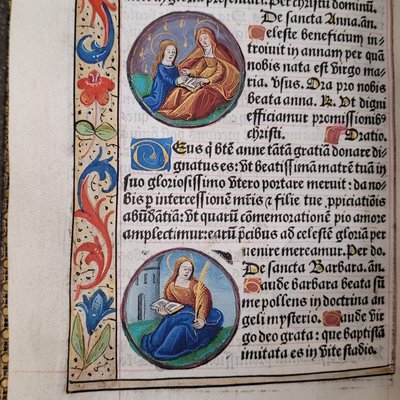 gloriosissimo presentari. Per christū dominū.
De sancta Anna. an̄.
Celeste beneficium in
troiuit in annam per quā
nobis nata est virgo ma
ria. Vsus. Ora pro nobis
beata anna. R. Vt digni
efficiamur promissionibꝰ
christi. Oratio.
Deus q̄ btē anne tātā gratiā donare di
gnatus es: vt beatissimā matrē tuā in
suo gloriosissimo vtero portare meruit: da no
bis p̄ intercessionem mr̄is ⁊ filie tue, ꝓpiciatiōis
abūdātiā: Vt quarū cōmemorationē pio amore
amplectimur: earū p̄cibus ad celestē gloriā per
uenire mereamur. Per do.
De sancta Barbara. an̄.
Gaude barbara beata sū
me pollens in doctrina an
geli mysterio. Gaude vir
go deo grata: que baptistā
imitata es in vite stadio.